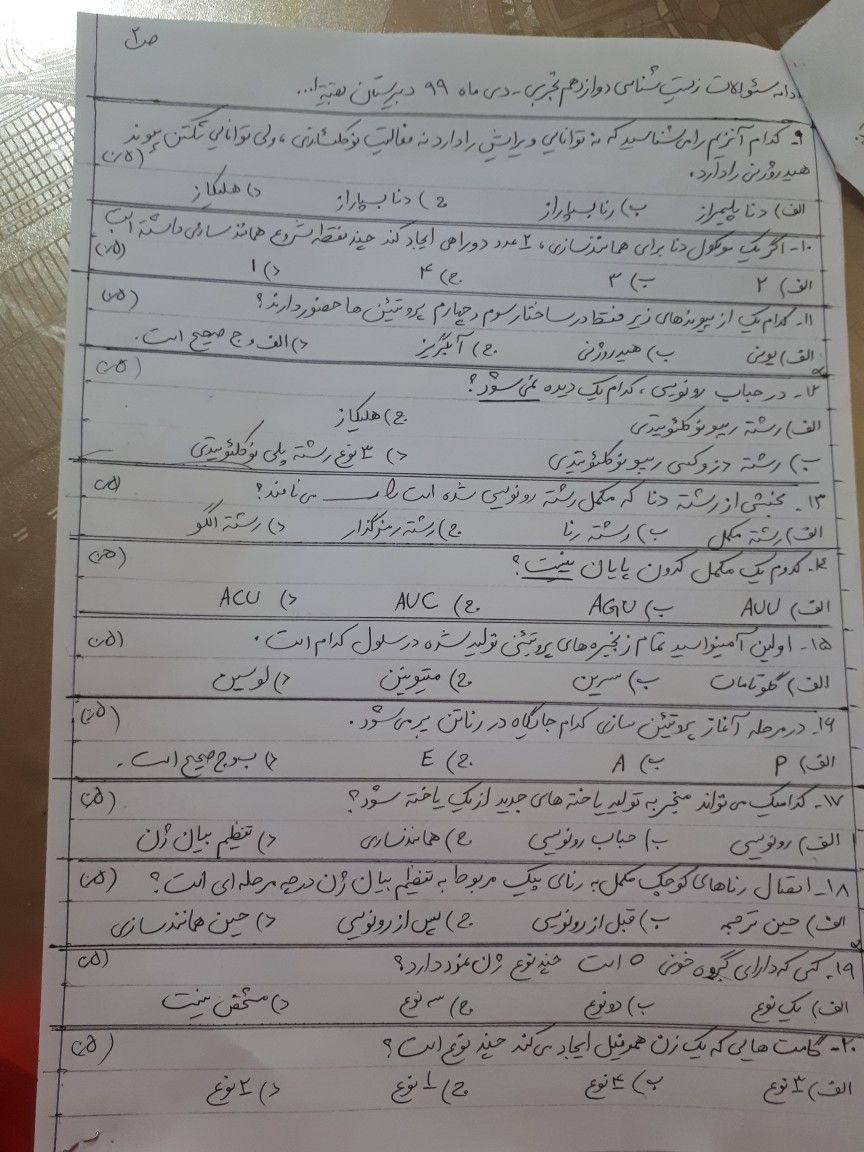 ص۲
ادامه سئوالات زیست شناسی دوازدهم تجربی - دی ماه ۹۹ دبیرستان
۹- کدام آنزیم را می شناسید که نه توانایی ویرایش را دارد نه فعالیت نوکلئازی، ولی توانایی شکستن پیوند
هیدروژنی را دارد. (۰/۵)
الف) دنا پلیمراز ب) رنابسپاراز ج) دنا بسپاراز د) هلیکاز
۱۰- اگر یک مولکول دنا برای همانندسازی، ۲ عدد دوراهی ایجاد کند چند نقطه شروع همانندسازی داشته است (۰/۵)
الف) ۲ ب) ۳ ج) ۴ د) ۱
۱۱- کدام یک از پیوندهای زیر فقط در ساختار سوم و چهارم پروتئین ها حضور دارند؟ (۰/۵)
الف) یونی ب) هیدروژنی ج) آبگریز د) الف و ج صحیح است.
۱۲- در حباب رونویسی، کدام یک دیده نمی شود؟ (۰/۵)
الف) رشته ریبونوکلئوتیدی ج) هلیکاز
ب) رشته دزوکسی ریبونوکلئوتیدی د) ۳ نوع رشته پلی نوکلئوتیدی
۱۳- بخشی از رشته دنا که مکمل رشته رونویسی شده است را ـــ می نامند؟ (۰/۵)
الف) رشته مکمل ب) رشته رنا ج) رشته رمزگذار د) رشته الگو
۱۴- کدوم یک مکمل کدون پایان نیست؟ (۰/۵)
الف) AUU ب) AGU ج) AUC د) ACU
۱۵- اولین آمینواسید تمام زنجیره های پروتئینی تولید شده در سلول کدام است. (۰/۵)
الف) گلوتامات ب) سرین ج) متیونین د) لوسین
۱۶- در مرحله آغاز پروتئین سازی کدام جایگاه در رناتن پر می شود. (۰/۵)
الف) P ب) A ج) E د) ب و ج صحیح است.
۱۷- کدامیک می تواند منجر به تولید یاخته های جدید از یک یاخته شود؟ (۰/۵)
الف) رونویسی ب) حباب رونویسی ج) همانندسازی د) تنظیم بیان ژن
۱۸- اتصال رناهای کوچک مکمل به رنای پیک مربوط به تنظیم بیان ژن در چه مرحله ای است؟ (۰/۵)
الف) حین ترجمه ب) قبل از رونویسی ج) پس از رونویسی د) حین همانندسازی
۱۹- کسی که دارای گروه خونی O است چند نوع ژن نمود دارد؟ (۰/۵)
الف) یک نوع ب) دو نوع ج) سه نوع د) مشخص نیست
۲۰- گامت هایی که یک زن هموفیل ایجاد می کند چند نوع است؟ (۰/۵)
الف) ۳ نوع ب) ۴ نوع ج) ۱ نوع د) ۲ نوع